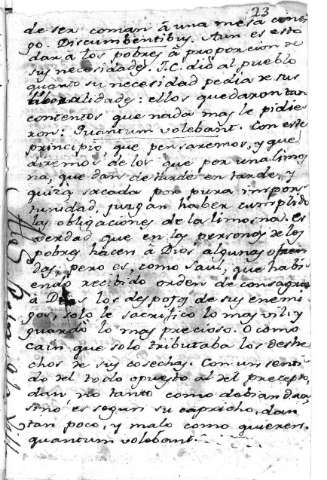 23
de ser coman â una mesa conmi-
go. Discumbentibus. Aun es esto
dar â los pobres â proporcion de
sus necesidades. J.C. diô al pueblo
quanto su necesidad pedia de sus
liberalidades: ellos quedaron tan
contentos que nada mas le pidie-
ron: Quantum volebant. Con este
principio que pensaremos, y que
diremos de los que por una limos-
na, que dan de tarde en tarde, y
quizâ sacada por pura impor-
tunidad, juzgan haber cumplido
las obligaciones de la limosna. Es
verdad que en las personas de los
pobres hacen â Dios algunas ofren-
das, pero es, como Saul, que habi-
endo recibido orden de consagrar
â Dios los despojos de sus enemi-
gos, solo le sacrificô lo mas vil, y
guardô lo mas precioso. O como
Cain, que solo tributaba los deshe-
chos de sus cosechas. Con un senti-
do del todo opuesto al del precepto,
dan no tanto como debian dar,
sino es segun su capricho, dan
tan poco, y malo como quieren.
quantum volebant.